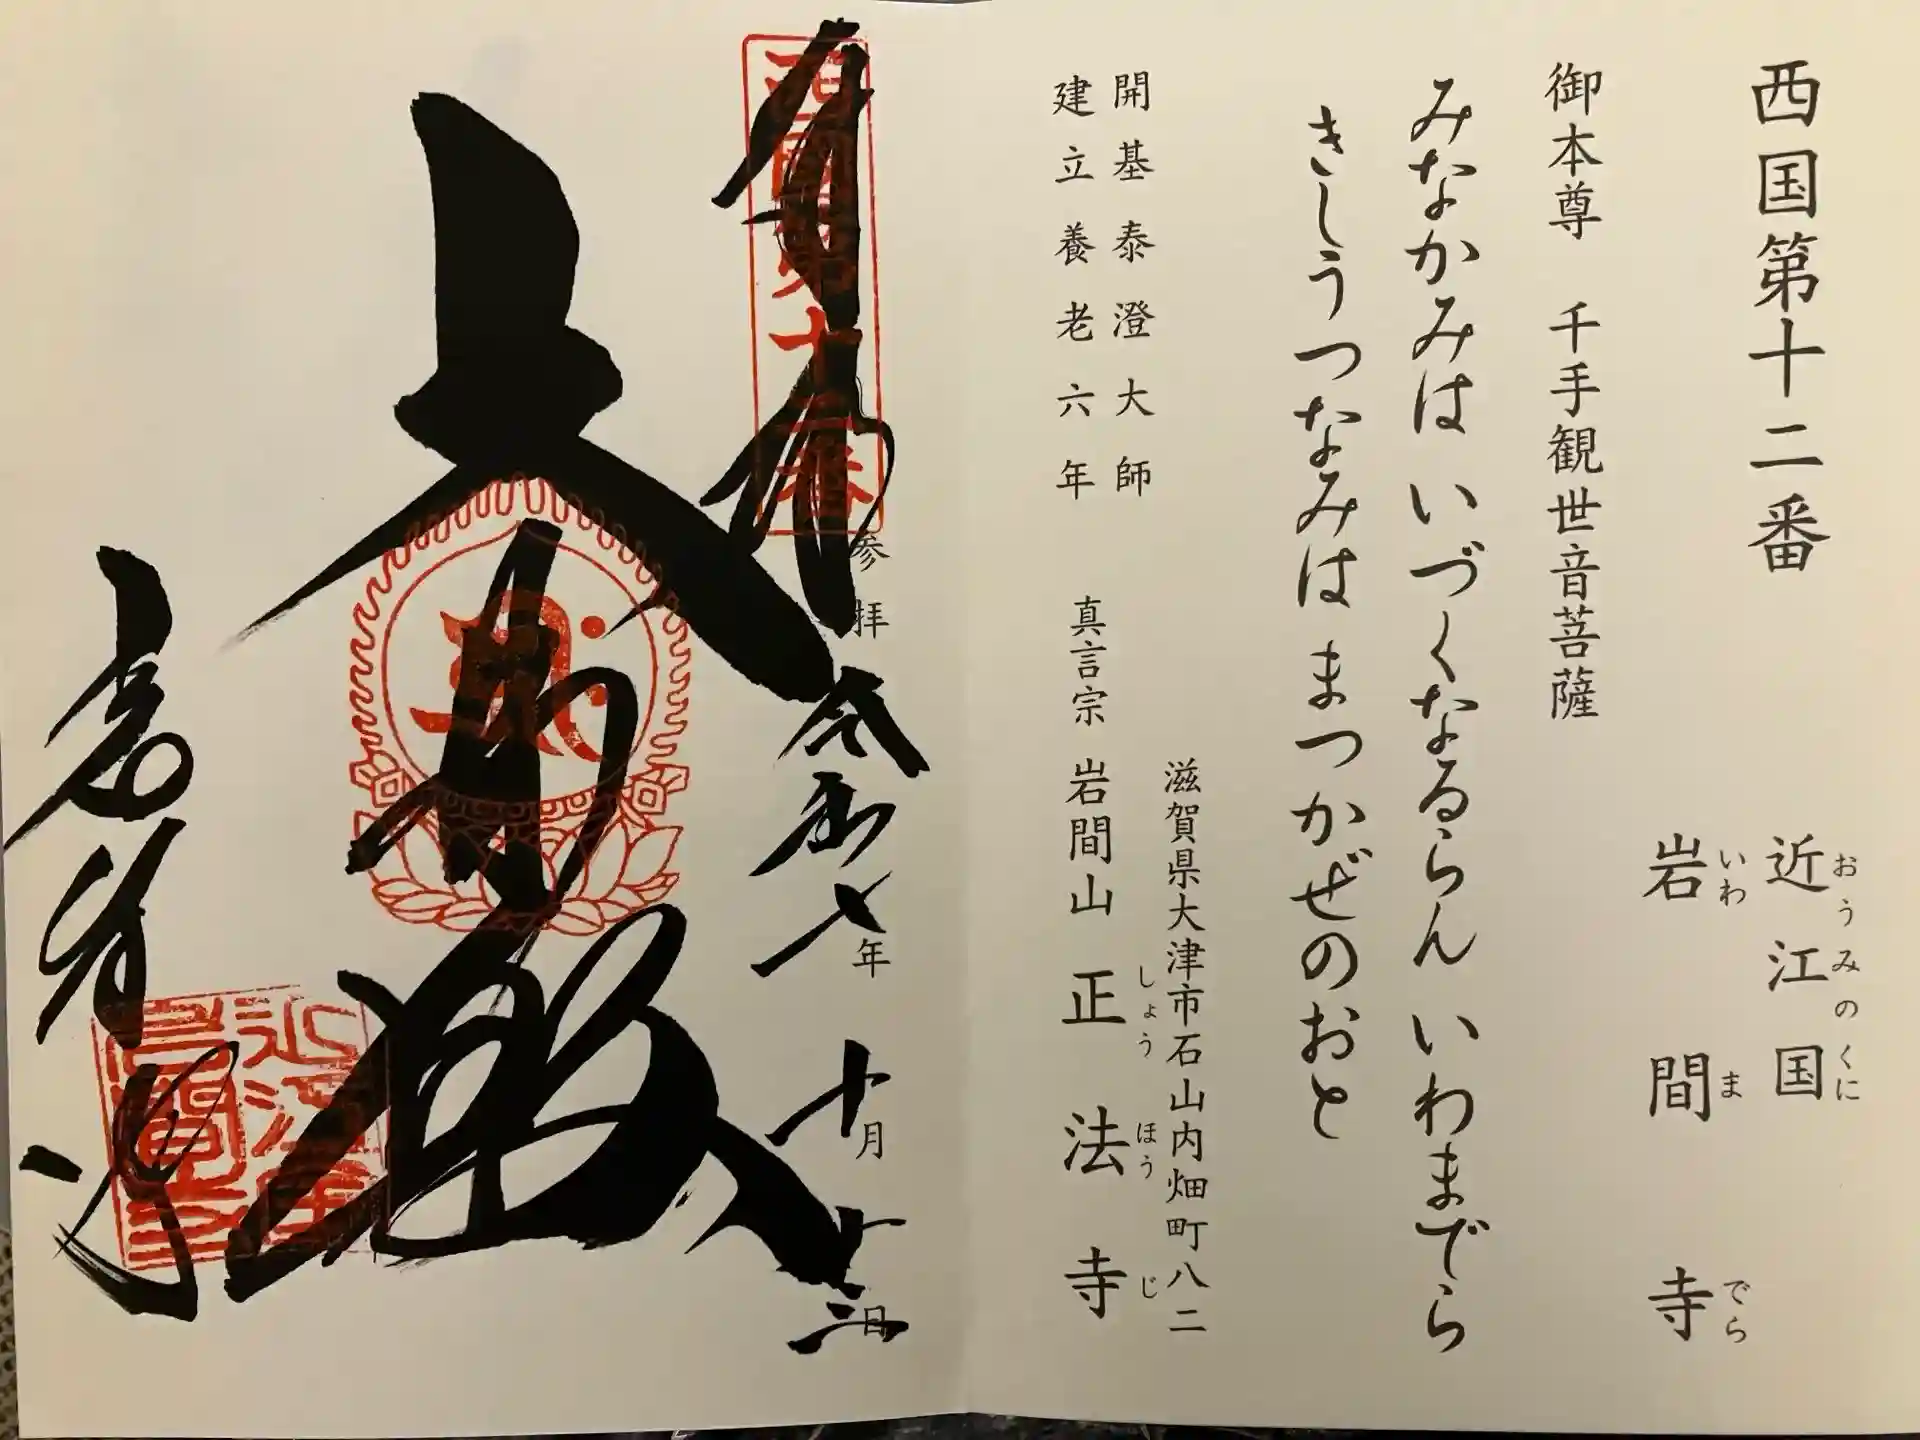 西国第十二番
近江国
おうみのくに
岩間寺
いわまでら
御本尊　千手観世音菩薩
みなかみは いづくなるらん いわまでら
きしうつなみは まつかぜのおと
開基泰澄大師
建立養老六年
滋賀県大津市石山内畑町八二
真言宗 岩間山 正法寺
しょうほうじ
奉拝
西國第十二番
参拝
令和七年 十月 十二日
大悲殿
岩間寺